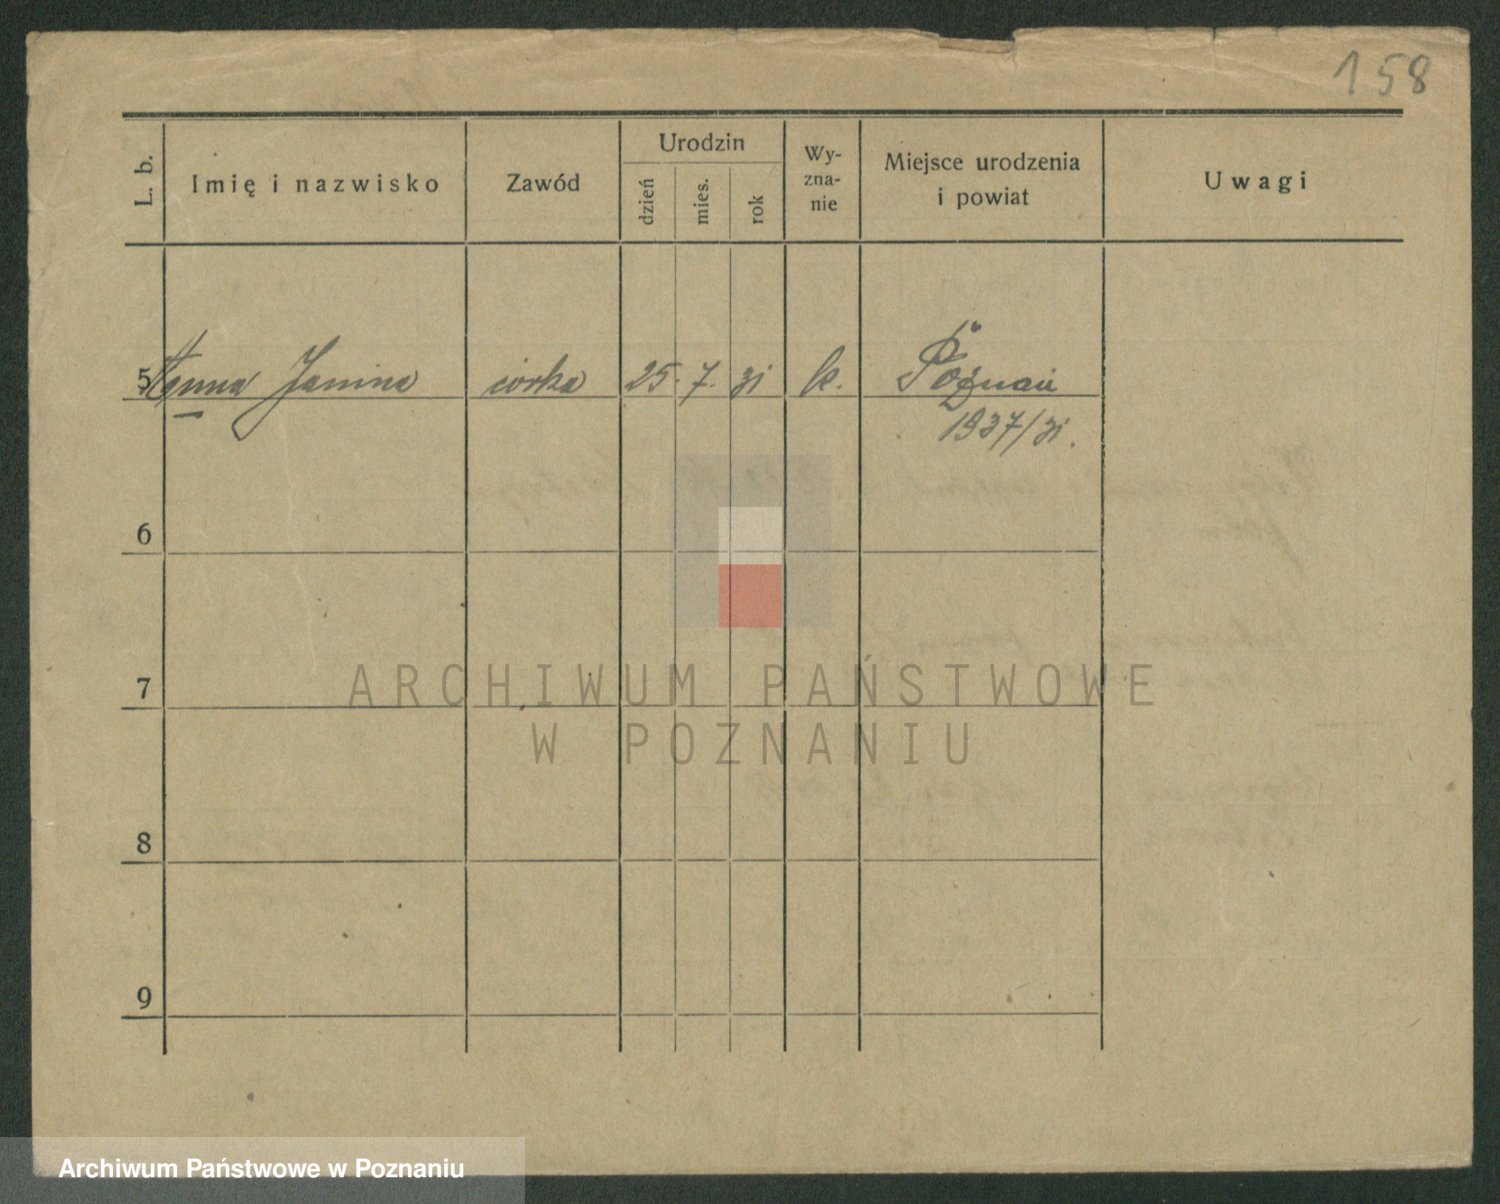 158
L. b.
Imię i nazwisko
Zawód
Urodzin
dzień
mies.
rok
Wy-
zna-
nie
Miejsce urodzenia
i powiat
Uwagi
5 Anna Janina córka 25. 7. 31 k. Poznań
1937/31.
6
7
8
9
ARCHIWUM PAŃSTWOWE
W POZNANIU
Archiwum Państwowe w Poznaniu